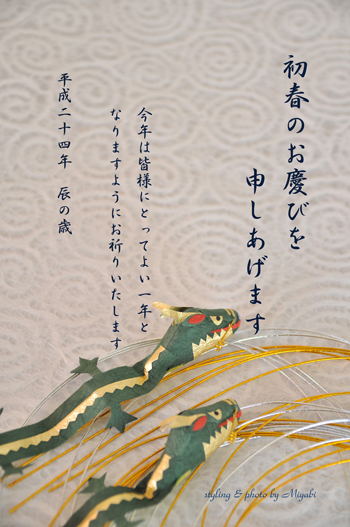 初春のお慶びを
申しあげます
今年は皆様にとってよい一年と
なりますようにお祈りいたします
平成二十四年 辰の歳
styling & photo by Miyabi